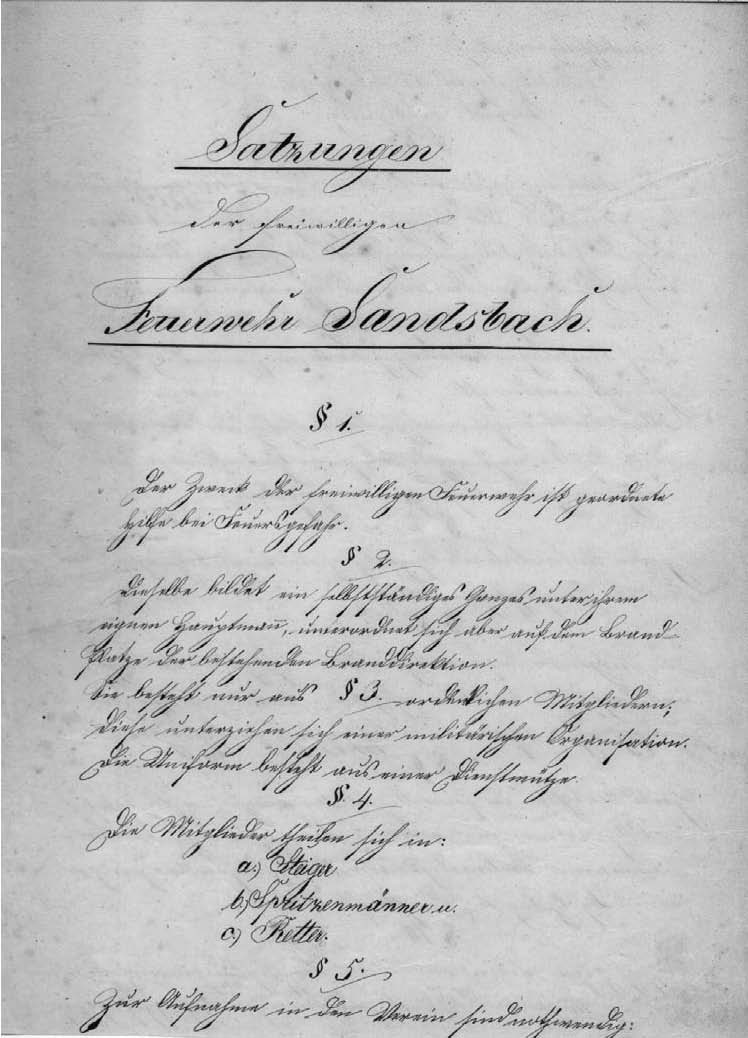 Satzungen
der freiwilligen
Feuerwehr Sandsbach.
§ 1.
Der Zweck der freiwilligen Feuerwehr ist geordnete
Hilfe bei Feuersgefahr.
§ 2.
Dieselbe bildet ein selbstständiges Ganzes unter ihrem
eignen Hauptmañ, unterordnet sich aber auf dem Brand-
platze der bestehenden Branddirektion.
Sie besteht nur aus § 3. ordentlichen Mitgliedern;
diese unterziehen sich einer militärischen Organisation.
Die Uniform besteht aus einer Dienstmütze.
§. 4.
Die Mitglieder theilen sich in:
a.) Steiger
b.) Spritzenmänner u.
c.) Retter.
§ 5.
Zur Aufnahme in den Verein sind nothwendig: